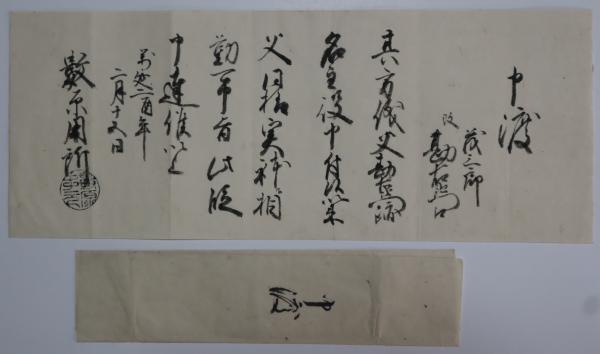 申渡
茂三郎
改
勘右衛門
其方儀父勘右衛門跡
名主役申付候条
父同様実体相
勤可申旨此段
申達候以上
万延二酉年
二月十五日
数原用所